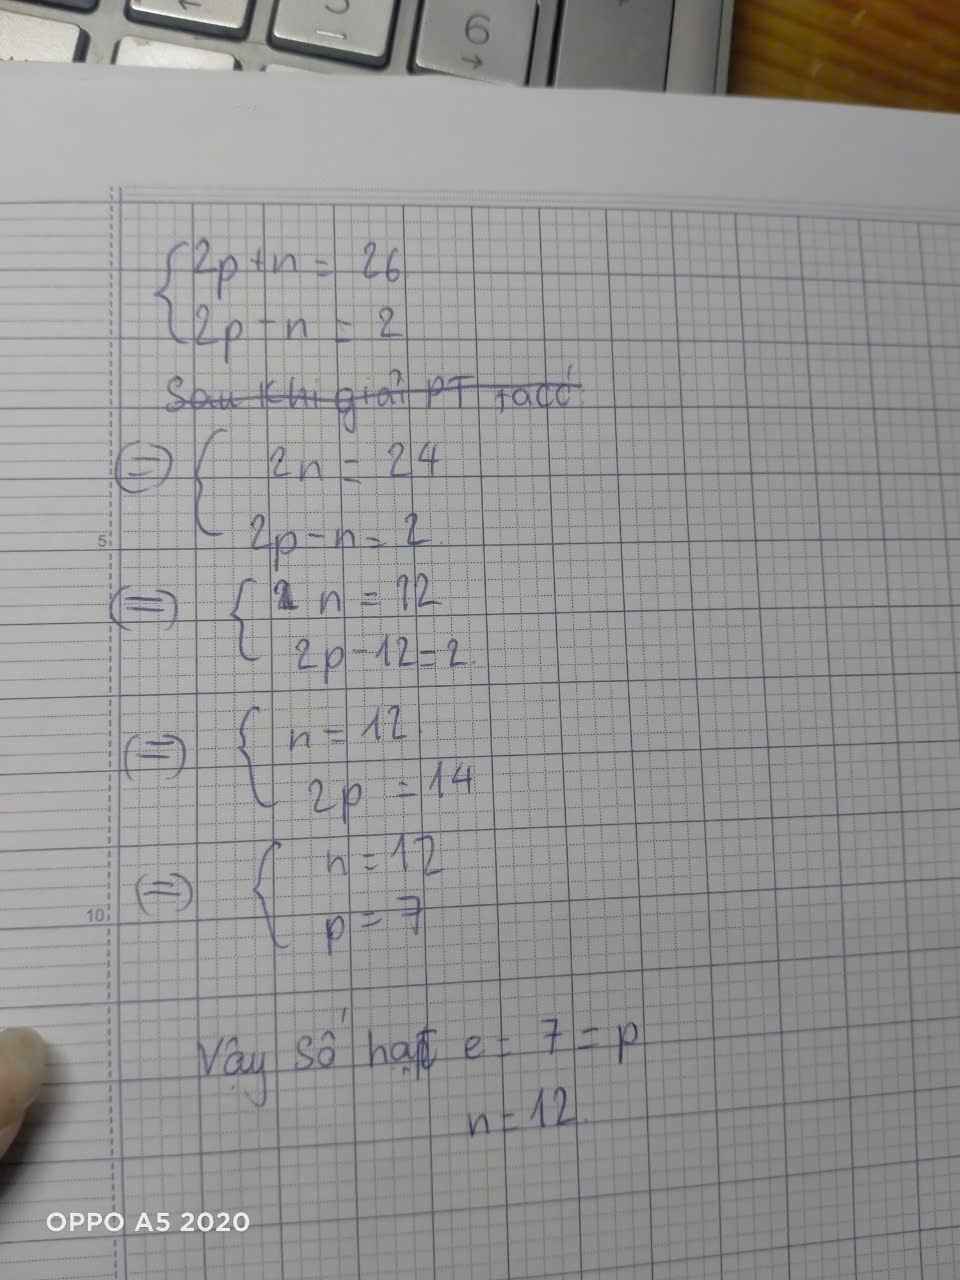 6
2p + n = 26
2p - n = 2
Sau khi giải PT ta có
(=) 2n = 24
5
2p - n = 2
(=) n = 12
2p - 12 = 2
(=) n = 12
2p = 14
(=) n = 12
10
p = 7
Vậy số hạt e = 7 = p
n = 12.
OPPO A5 2020